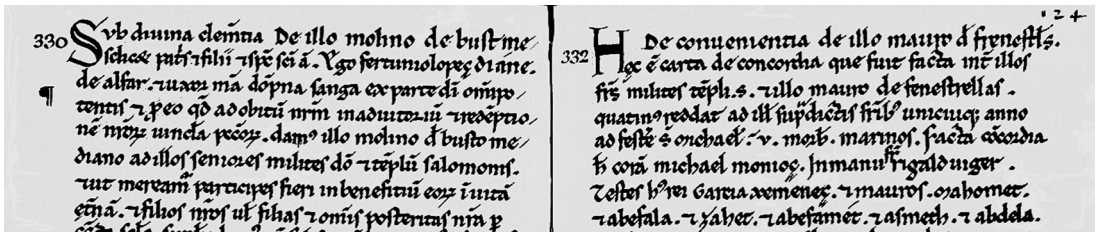 330 Sub divina clem̄tia De illo molino de bust me/
S scħoe pat̄s ⁊ filii ⁊ spc̄ sci ā. Ygo fertuniolopeç diane.
de alfar. ⁊ uxor mā dōpna sanga ex parte dī om̄ipo/
¶ tentis ⁊ ꝓ eo qd̄ ad obitū nr̄m in adiutoriū ⁊ redēptio/
nē nr̄oꝝ uincl̄a pccoꝝ. damꝰ illo molino đ busto me/
diano ad illos seniores milites dō ⁊ tēplū salomonis.
⁊ ut meream̄ participes fieri in benefitiū eoꝝ ī uitā
et̄nā. ⁊ filios nr̄os ul̄ filias ⁊ om̄is posteritas nr̄a ꝑ
124
De conuenientia de illo mauro đ frenestl̄s.
332 Hec ē carta de concordia que fuit facta int̄ illos
fr̄s milites tēpli.s. ⁊ illo mauro de fenestrellas.
quatinꝰ reddat ad ill̄ sup̄dictis fr̄ibꝰ unicuiq; anno
ad festē s̄ michael. v. morb̄. marinos. Facta cōcordia
ħ corā michael monioç. In manu fr̄ rigald uiger.
Testes hꝰ rei Garcia xemeneç. ⁊ mauros. mahomet.
⁊ abefala. ⁊ zahet. ⁊ abefamet. ⁊ asmeth. ⁊ abdela.